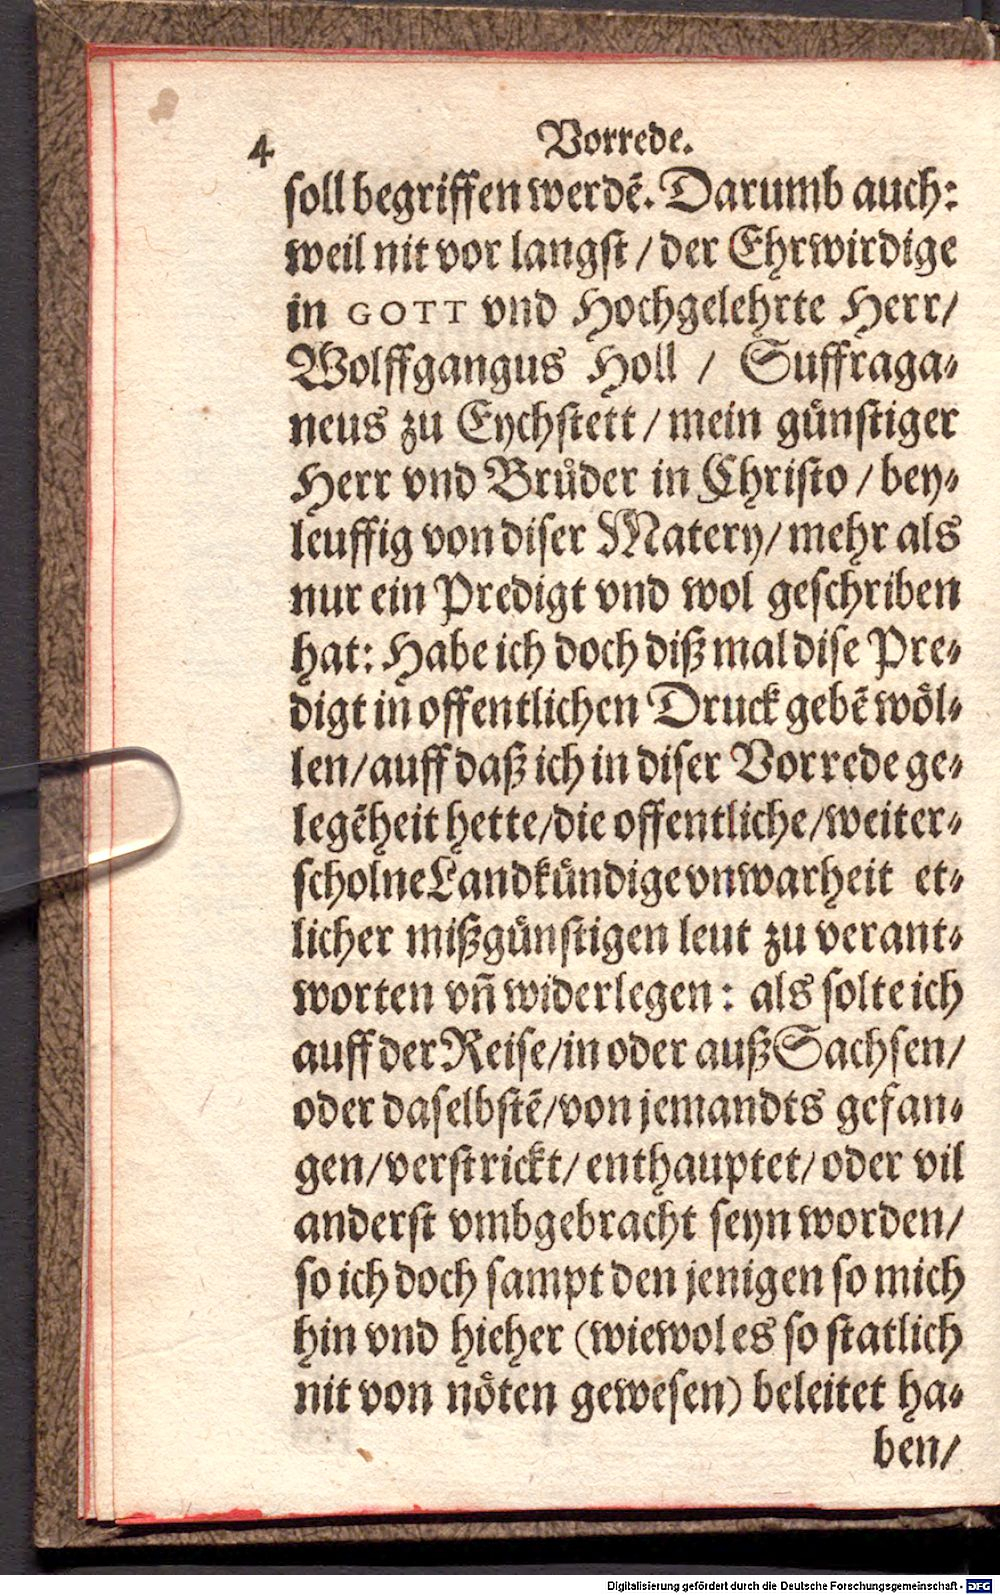 4 Vorrede.
soll begriffen werdẽ. Darumb auch:
weil nit vor langst / der Ehrwirdige
in GOTT vnd Hochgelehrte Herr/
Wolffgangus Holl / Suffraga-
neus zu Eychstett / mein günstiger
Herr vnd Brůder in Christo / bey-
leuffig von diser Matery/ mehr als
nur ein Predigt vnd wol geschriben
hat: Habe ich doch diß mal dise Pre-
digt in offentlichen Druck gebẽ wöl-
len/auff daß ich in diser Vorrede ge-
legẽheit hette/die offentliche/weiter-
scholne Landkündige vnwarheit et-
licher mißgünstigen leut zu verant-
worten vñ widerlegen: als solte ich
auff der Reise/in oder auß Sachsen/
oder daselbstẽ/von jemandts gefan-
gen/verstrickt/ enthauptet/oder vil
anderst vmbgebracht seyn worden/
so ich doch sampt den jenigen so mich
hin vnd hieher (wiewol es so statlich
nit von nöten gewesen) beleitet ha-
ben/
Digitalisierung gefördert durch die Deutsche Forschungsgemeinschaft - DFG